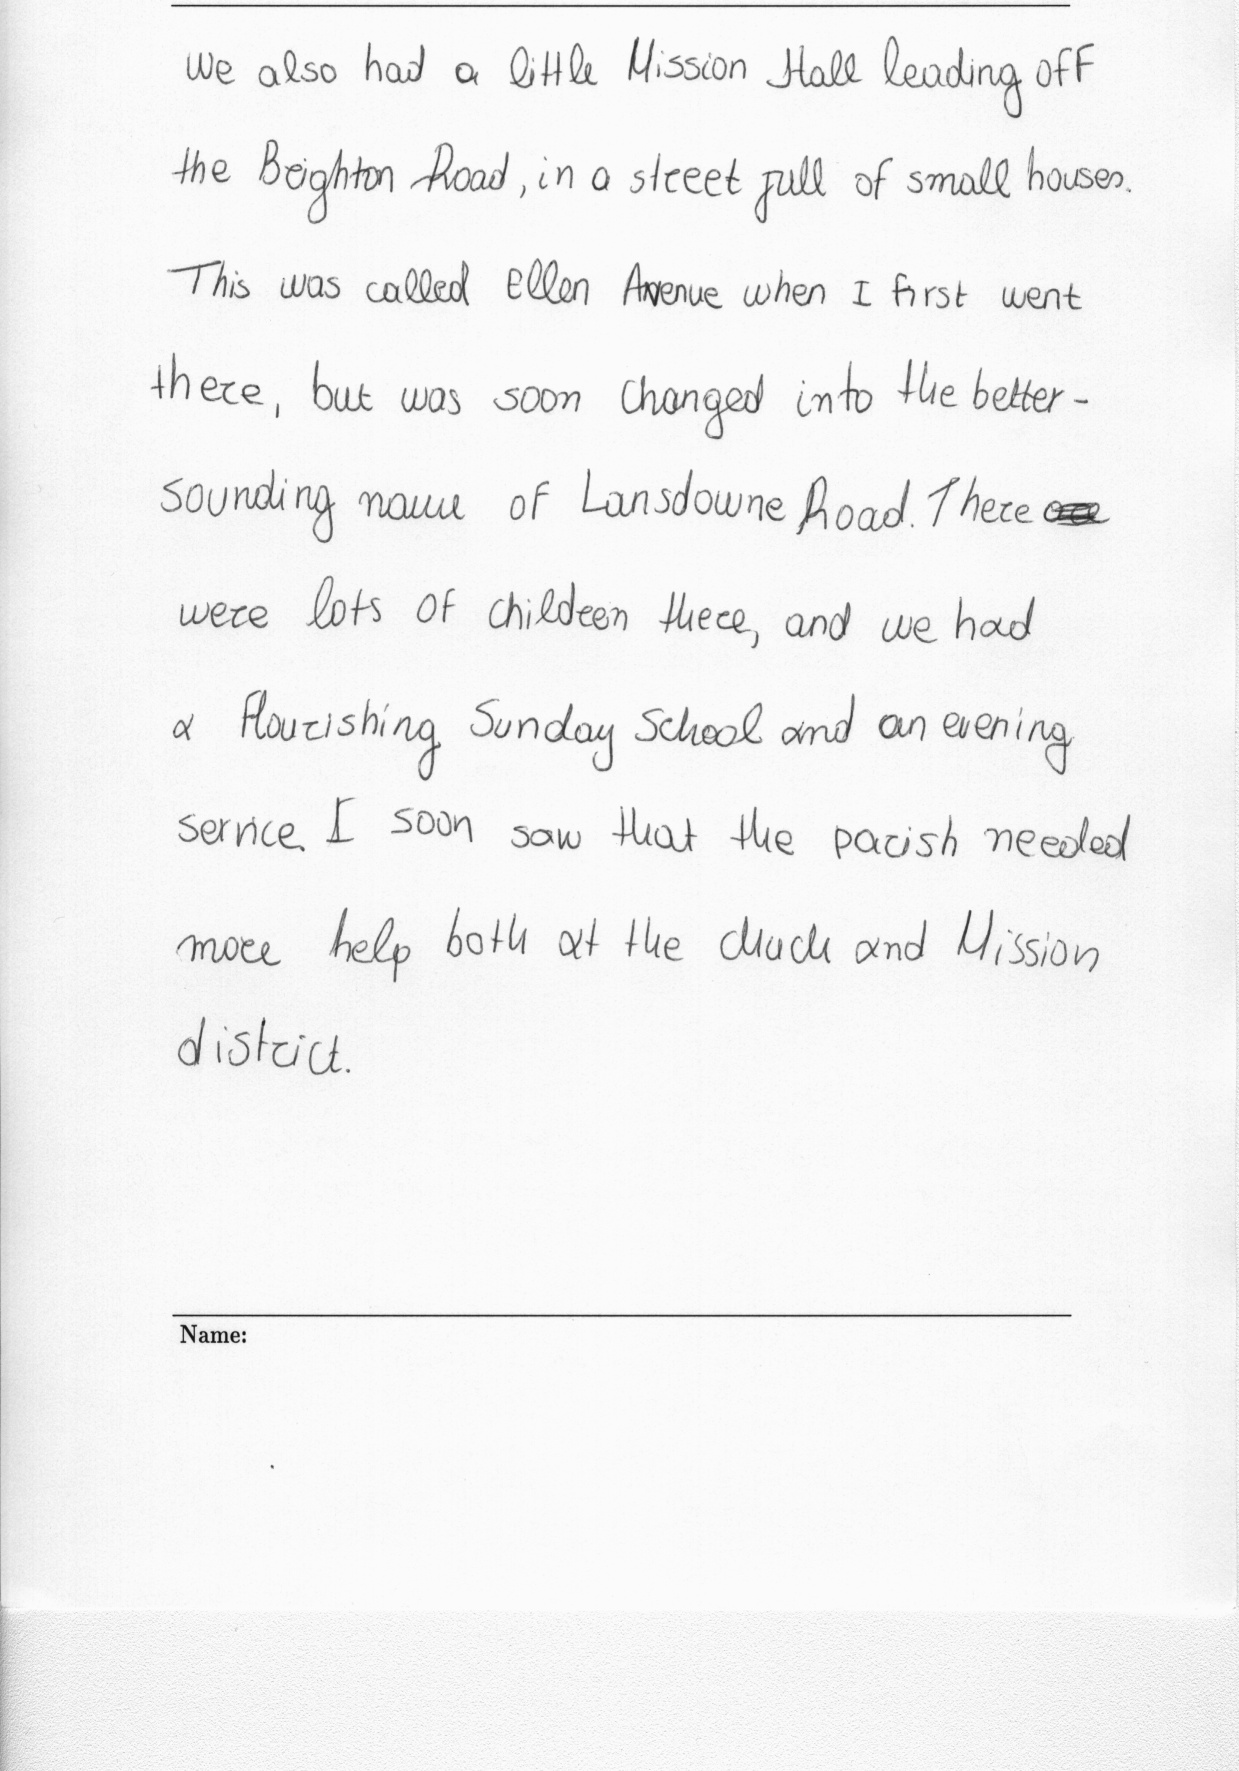 we also had a little Mission Hall leading off
the Brighton Road, in a street full of small houses.
This was called Ellen Avenue when I first went
there, but was soon changed into the better-
sounding name of Lansdowne Road. There
were lots of children there, and we had
a flourishing Sunday School and an evening
service. I soon saw that the parish needed
more help both at the church and Mission
district.
Name: